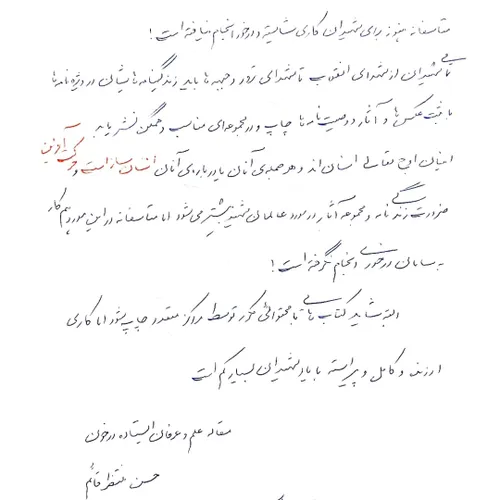 متاسفانه هنوز برای شهیدان کاری شایسته و درخور انجام نیافته است!
شهیدان از شهدای انقلاب تا شهدای ترور و جبهه ها باید زندگینامه هایشان در ویژه نامه ها
با ثبت عکس ها و آثار و وصیت نامه ها چاپ و در مجموعه ای مناسب و همگن نشر یابد
اینان اوج تعالی انسان اند و هر جمله ی آنان یا درباره ی آنان انسان ساز است و حرکت آفرین
ضرورت زندگی نامه و مجموعه آثار در مورد عالمان شهید بیشتر می شود اما متاسفانه در این مورد هم کار
به سامان درخوری انجام نگرفته است!
البته شاید کتاب هایی با محتوای مکرر توسط مراکز متعدد چاپ شود اما کاری
ارزنده و کامل و پیراسته با یاد شهیدان بسیار کم است
مقاله علم و عرفان ایستاده در خون
حسن منتظر قائم